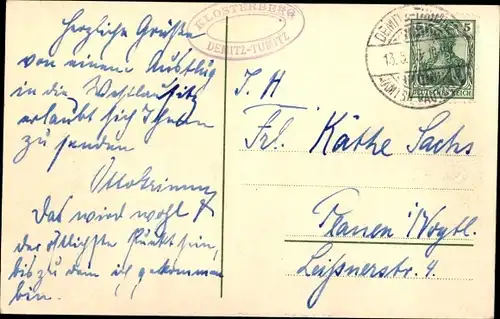 Herzliche Grüße
von einem Ausflug
in die Westlausitz
erlaubt sich Ihnen
zu senden
Das wird wohl
der östlichste Punkt sein,
bis zu dem ich gekommen
bin.
KLOSTERBERG
DEMITZ-THUMITZ
5
DEUTSCHES REICH
I. H
Frl. Käthe Sachs
Plauen i/Vogtl.
Leißnerstr. 4.